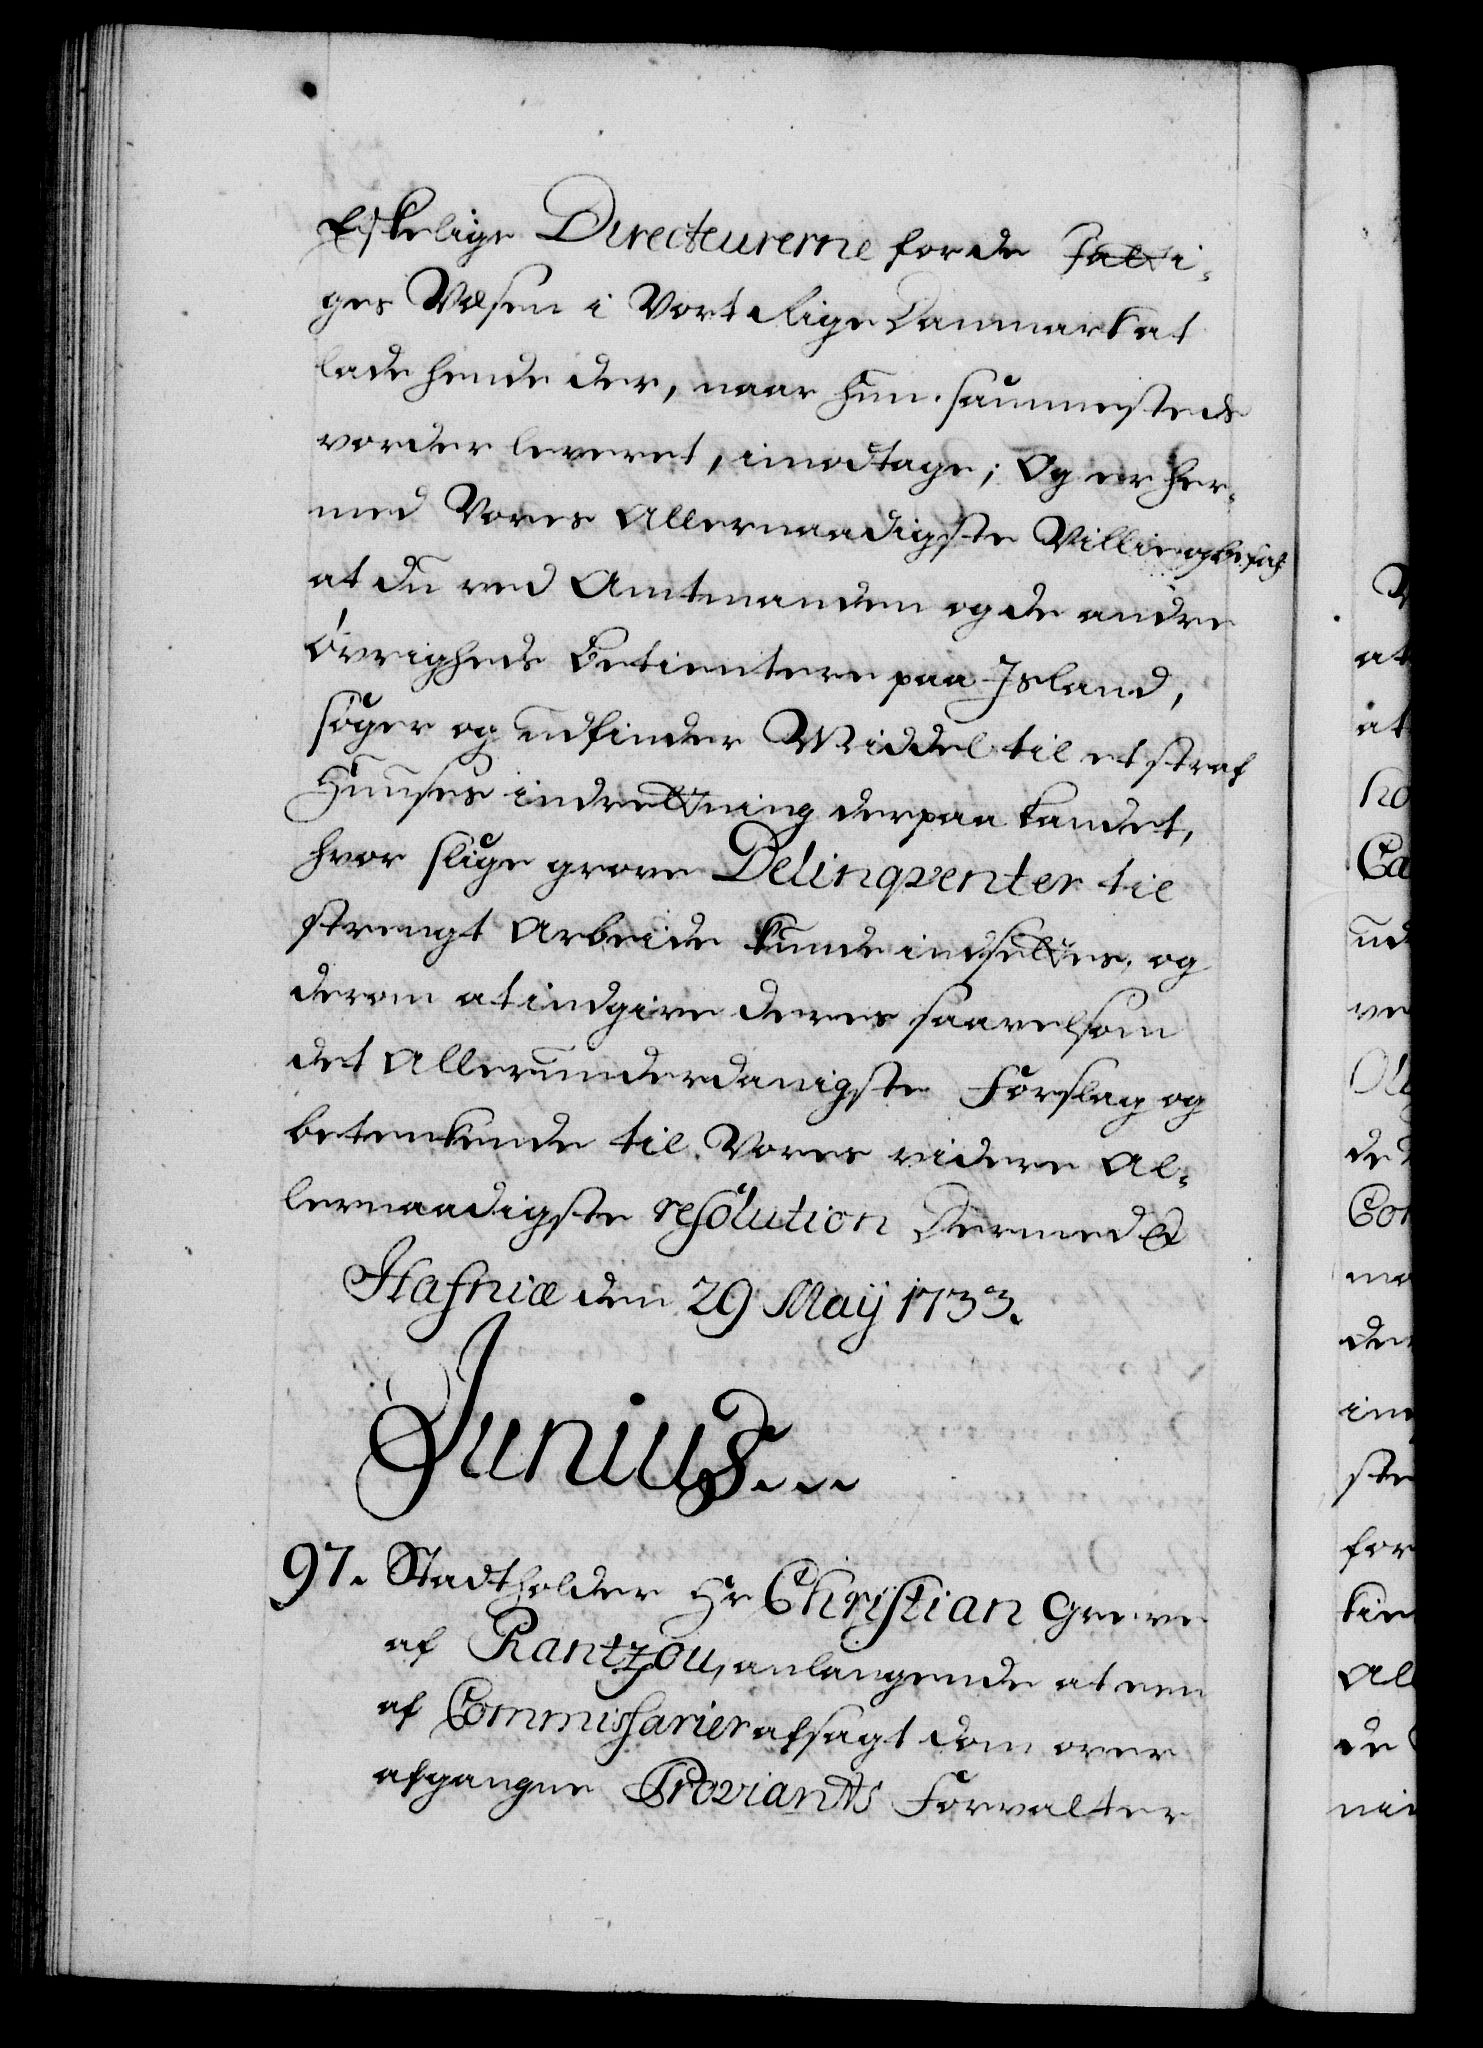 Elskelige Directeurerne for de Fatti-
ges Wæsen i Vort Rige Danmark at
lade hende der, naar hun saunnesteds
vorder leveret, imodtage; Og er her-
med Vores Allernaadigste Villie og befal
at du ved Amtmanden og de andre
Øvrigheds Betientere paa Jsland,
søger og udfinder Middel til et straf
Huuses indrettning der paa Landet,
hvor slige grove Delinqventer til
strengt Arbeide kunde indsettes, og
derom at indgive deres saavelsom
det Allerunderdanigste Forslag og
betenkende til Vores videre Al-
lernaadigste resolution Dermed &
Hafniæ den 29 Maij 1733.
Junius...
97. Stadtholder Hr Christian Greve
af Rantzou, anlangende at een
af Commissarier afsagt dom over
afgangne Proviants Forvalter